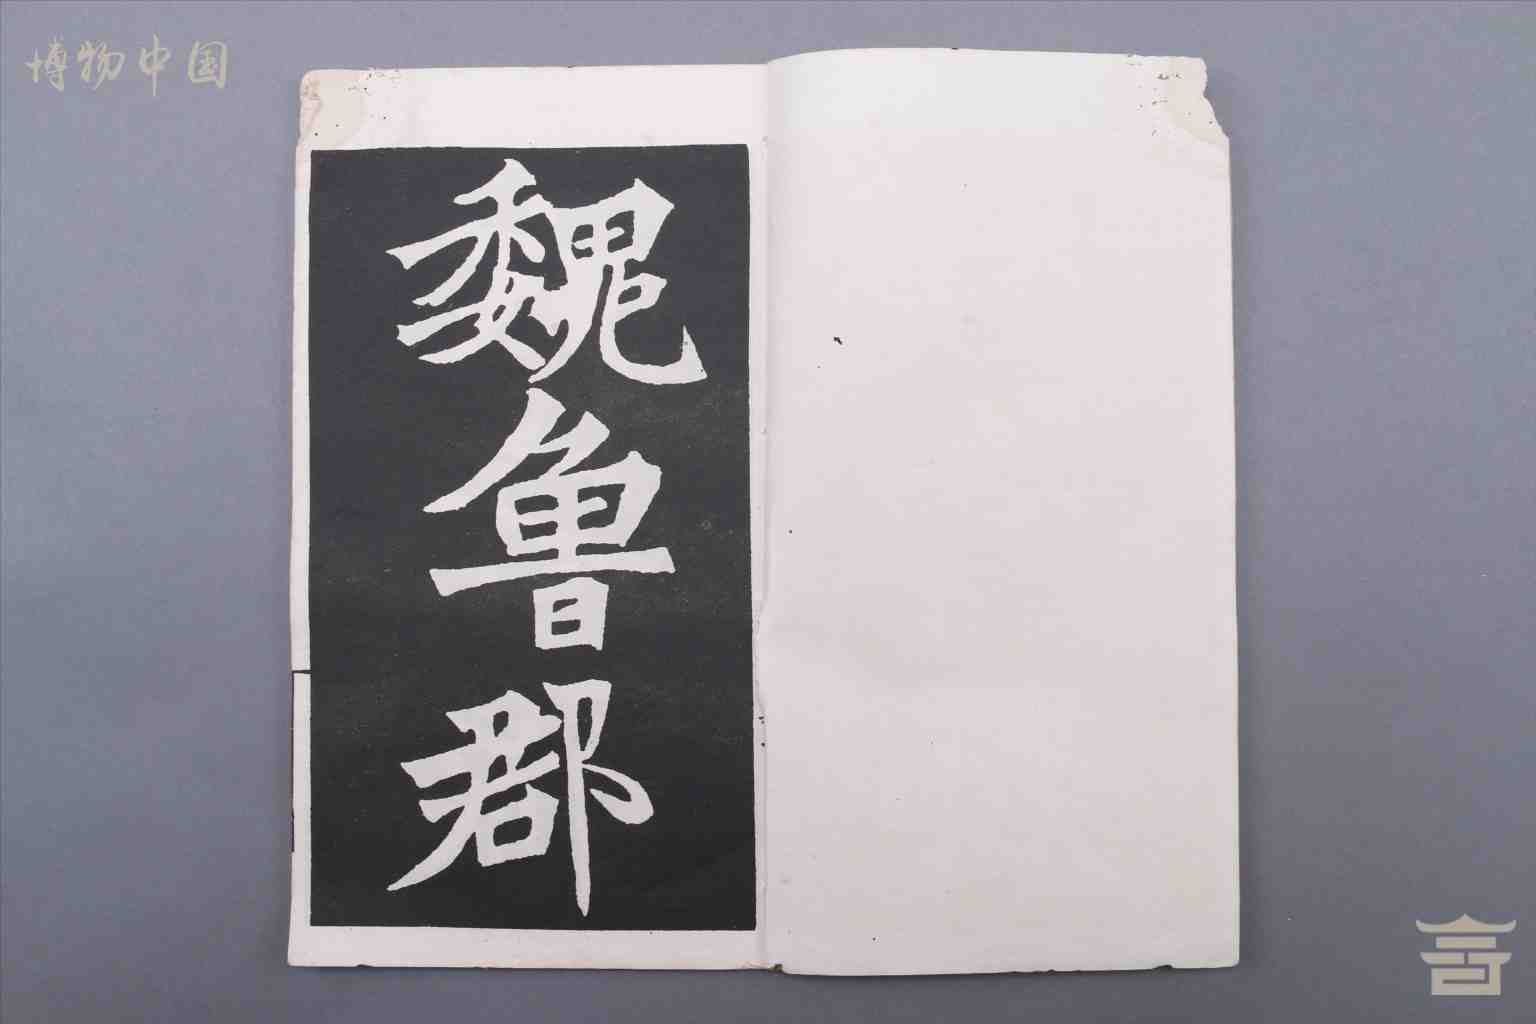 博物中国
魏魯郡